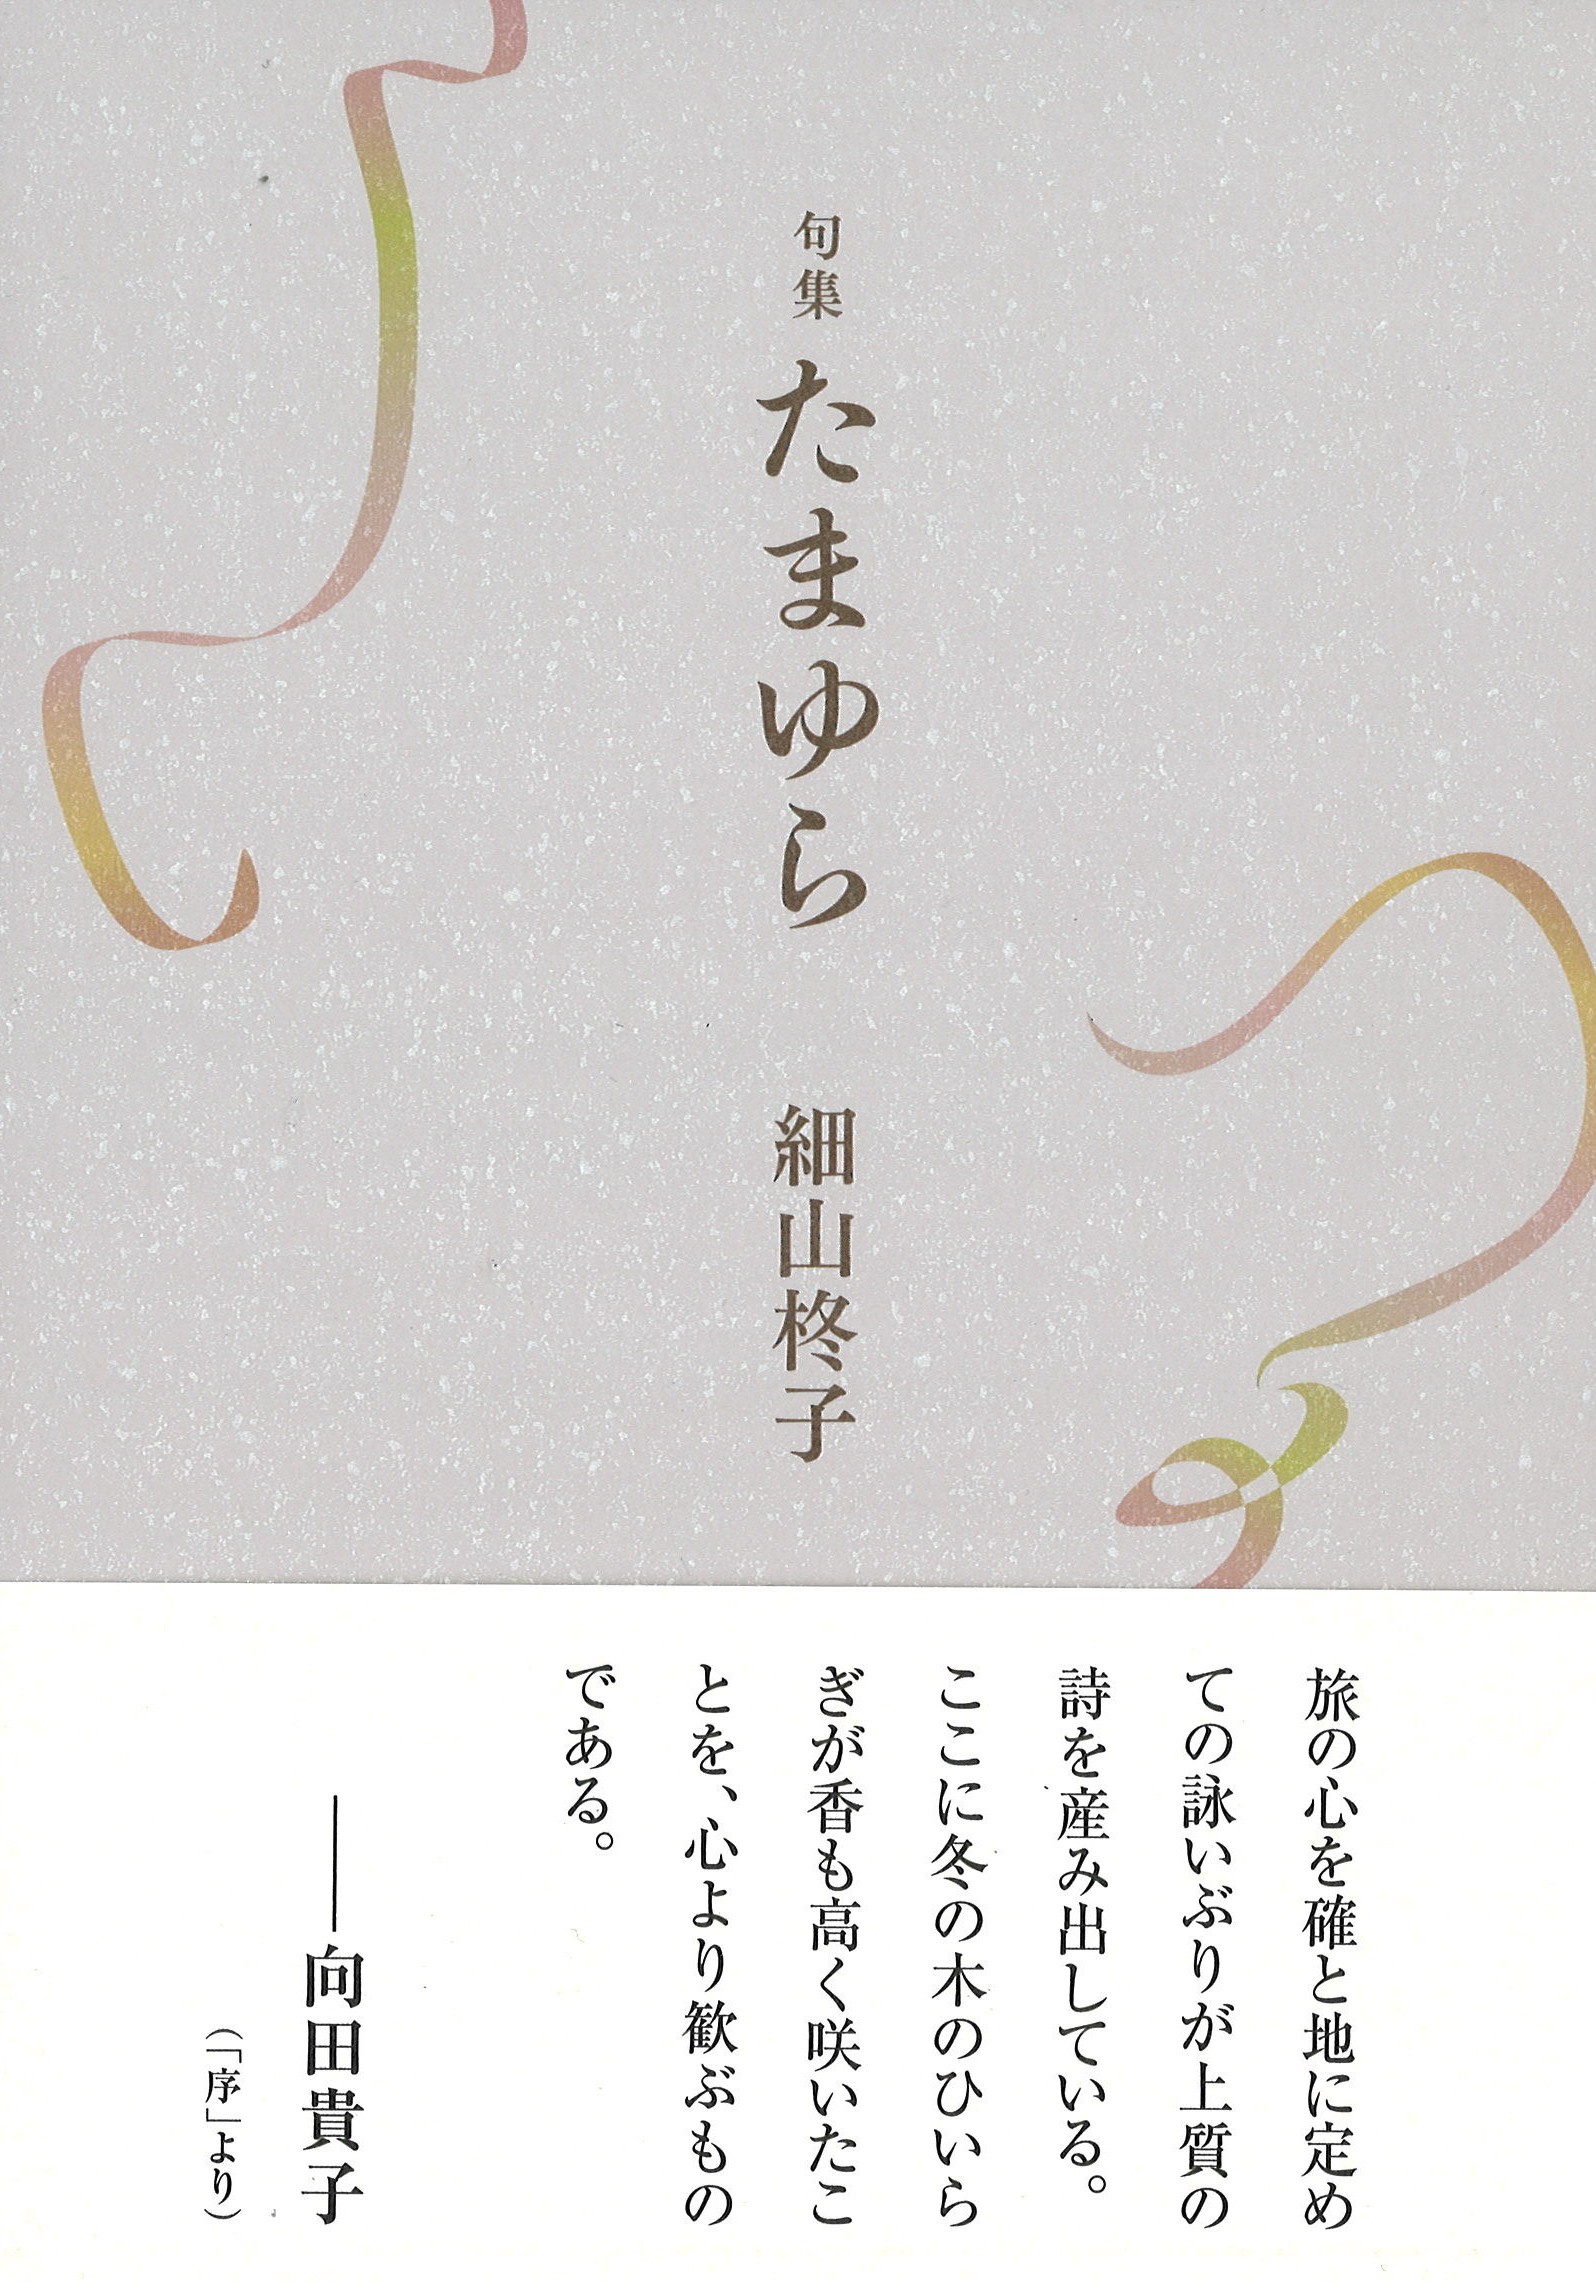 句集 たまゆら 細山柊子
旅の心を確と地に定め
ての詠いぶりが上質の
詩を産み出している。
ここに冬の木のひいら
ぎが香も高く咲いたこ
とを、心より歓ぶもの
である。
――向田貴子
（「序」より）